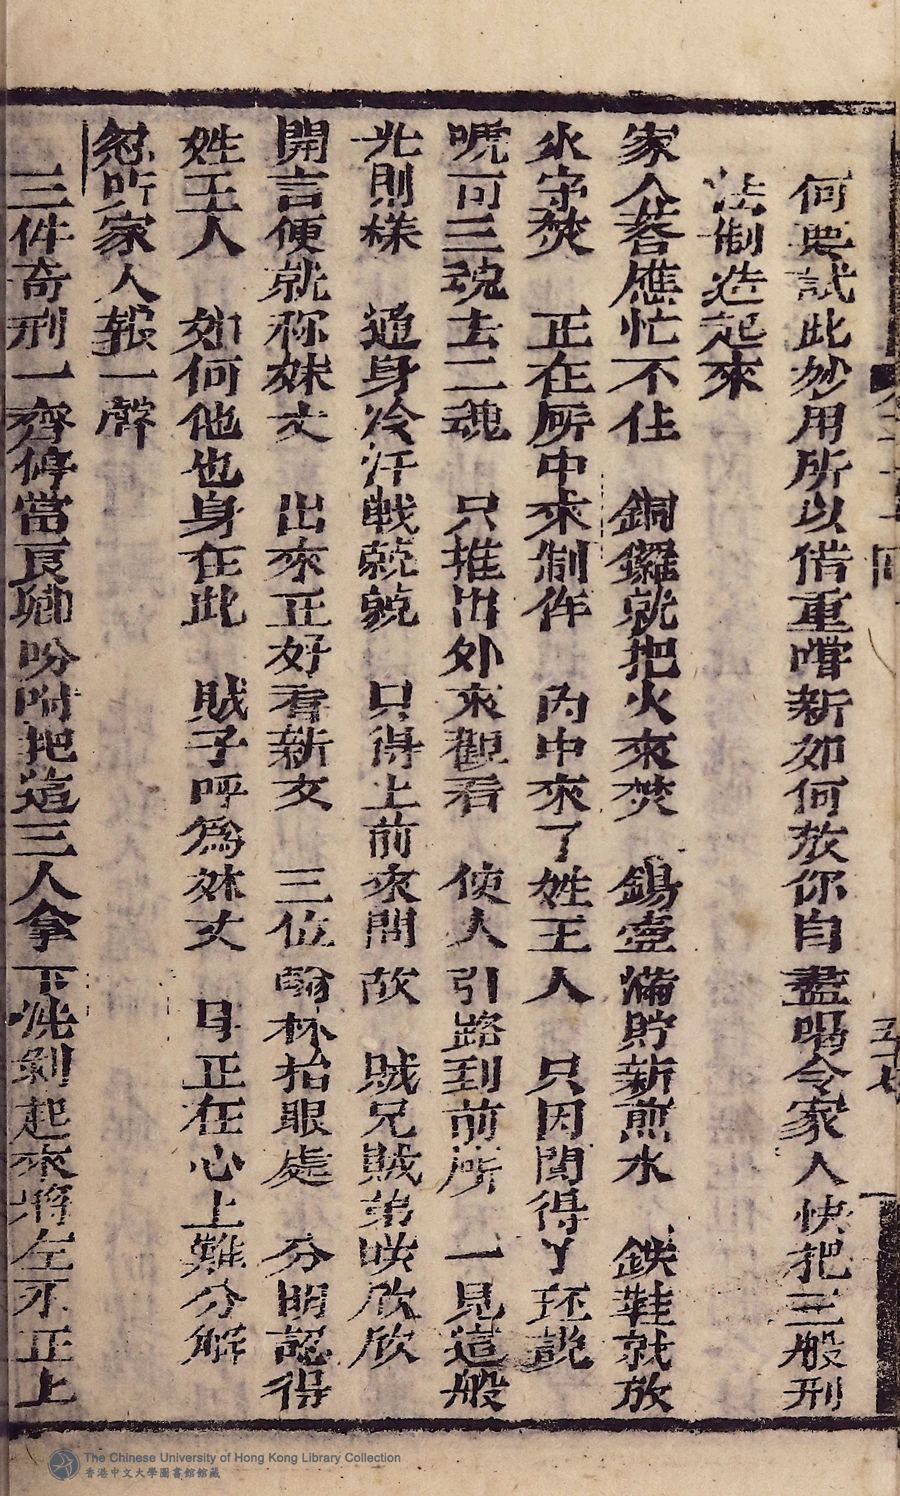 何要試此妙用所以借重嚐新如何放你自盡喝令家人快把三般刑
法制造起來
家人荅應忙不住　銅鑼就把火來焚　錫壺滿貯新煎水　鉄鞋就放
火字焚　正在所中來制作　內中來了姓王人　只因聞得丫环說
唬可三魂去二魂　只推出外來觀看　使人引路到前所　一見這般
光則樣　通身冷汗戰兢兢　只得上前來問故　賊兄賊弟咲欣欣
開言便就称妹丈　出來正好看新文　三位翰林抬眼處　分明認得
姓王人　如何他也身在此　賊子呼為妹丈　正在心上難分解
忽听家人報一聲
三件奇刑一齊停當良卿吩咐把這三人拿下洗剝起來將左不正上
五十七
The Chinese University of Hong Kong Library Collection
香港中文大學圖書館館藏